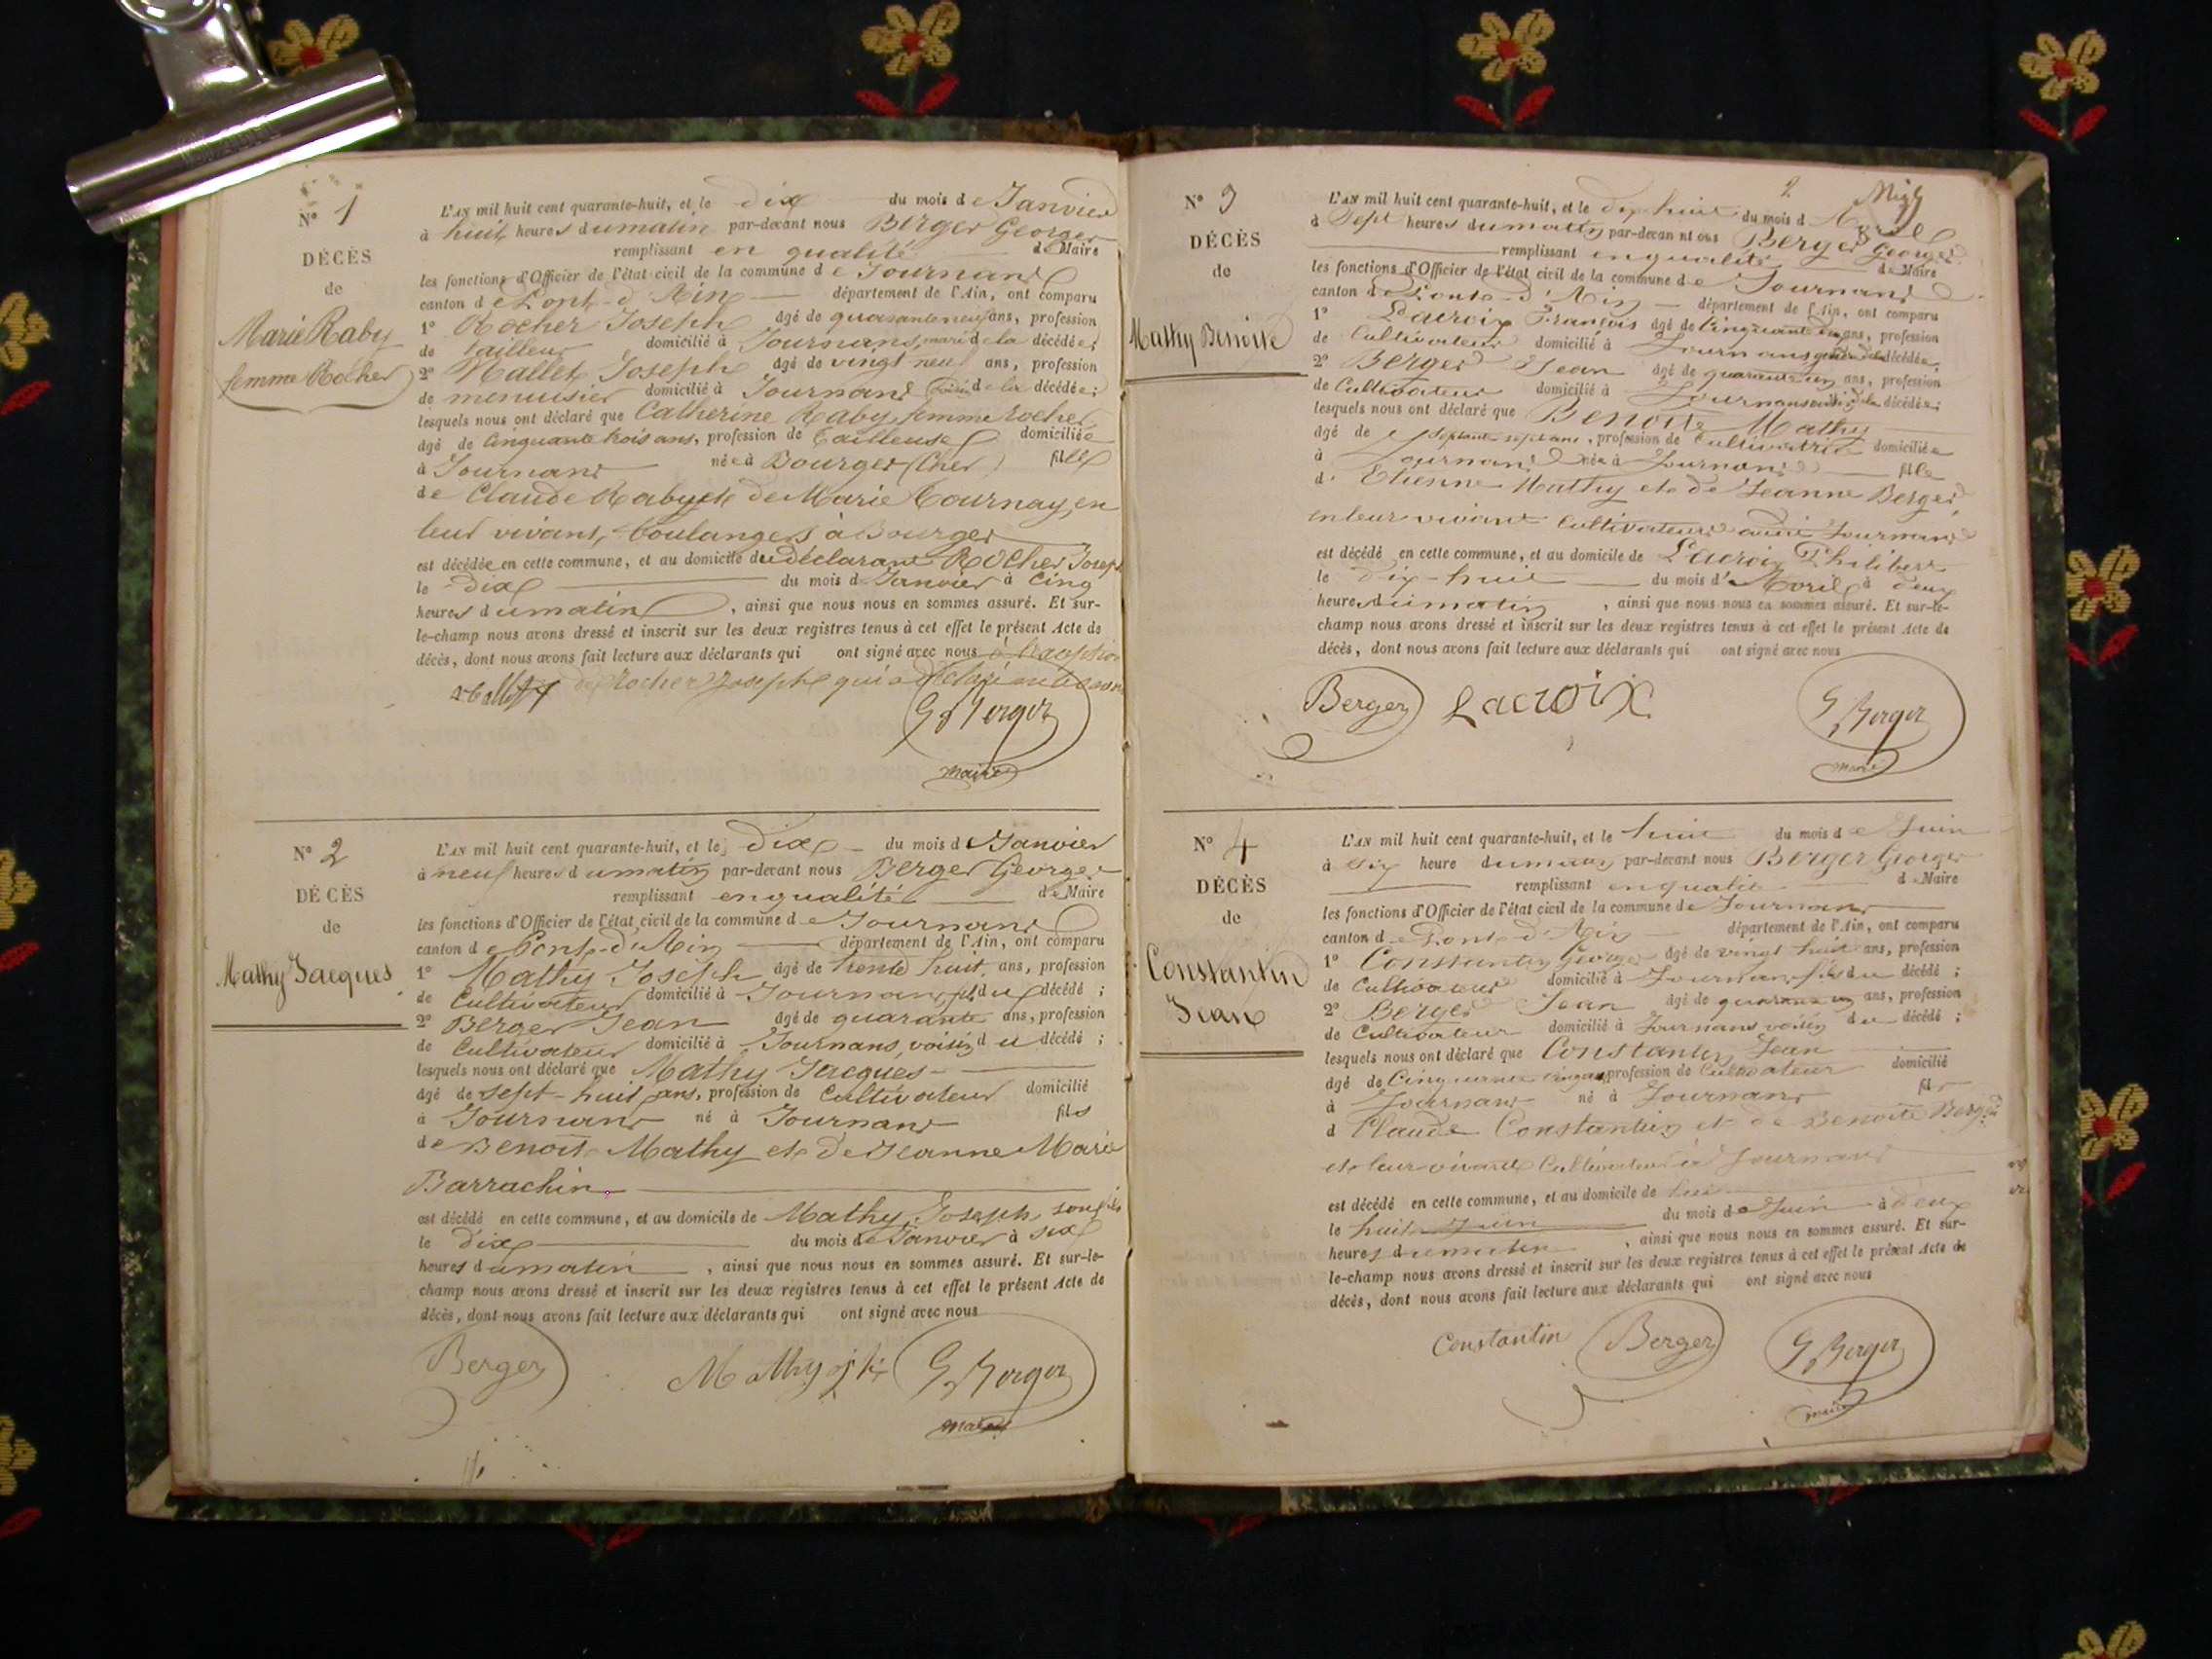 N° 1
DÉCÈS
de
Marie Raby
femme Rocher
L'AN mil huit cent quarante-huit, et le dix du mois de Janvier
à huit heures du matin par-devant nous Berger George
remplissant en qualité de Maire
les fonctions d'Officier de l'état civil de la commune de Journans
canton de Pont-d'Ain département de l'Ain, ont comparu
1° Rocher Joseph âgé de quarante neuf ans, profession
de tailleur domicilié à Journans, mari de la décédée;
2° Mallet Joseph âgé de vingt neuf ans, profession
de menuisier domicilié à Journans voisin de la décédée;
lesquels nous ont déclaré que Catherine Raby, femme rocher,
âgé de cinquante trois ans, profession de tailleuse domiciliée
à Journans née à Bourges (Cher) fille
de Claude Raby et de Marie Tournay, en
leur vivant, boulangers à Bourges
est décédée en cette commune, et au domicile du déclarant Rocher Joseph
le dix du mois de Janvier à cinq
heures du matin, ainsi que nous nous en sommes assuré. Et sur-
le-champ nous avons dressé et inscrit sur les deux registres tenus à cet effet le présent Acte de
décès, dont nous avons fait lecture aux déclarants qui ont signé avec nous à l'exception
de Rocher Joseph qui a déclaré
Mallet
G Berger
maire
N° 2
DÉCÈS
de
Mathy Jacques
L'AN mil huit cent quarante-huit, et le dix du mois de Janvier
à neuf heures du matin par-devant nous Berger George
remplissant en qualité de Maire
les fonctions d'Officier de l'état civil de la commune de Journans
canton de Pont-d'Ain département de l'Ain, ont comparu
1° Mathy Joseph âgé de trente huit ans, profession
de Cultivateur domicilié à Journans, fils du décédé;
2° Berger Jean âgé de quarante ans, profession
de Cultivateur domicilié à Journans, voisin du décédé;
lesquels nous ont déclaré que Mathy Jacques
âgé de sept-huit ans, profession de Cultivateur domicilié
à Journans né à Journans fils
de Benoit Mathy et de Jeanne Marie
Barrachin
est décédé en cette commune, et au domicile de Mathy Joseph, son fils
le dix du mois de Janvier à six
heures du matin, ainsi que nous nous en sommes assuré. Et sur-le-
champ nous avons dressé et inscrit sur les deux registres tenus à cet effet le présent Acte de
décès, dont nous avons fait lecture aux déclarants qui ont signé avec nous
Berger Mathy G Berger
maire
2
N° 3
DÉCÈS
de
Mathy Benoite
L'AN mil huit cent quarante-huit, et le dix huit du mois d'Avril
à sept heures du matin par-devant nous Berger George
remplissant en qualité de Maire
les fonctions d'Officier de l'état civil de la commune de Journans
canton de Pont-d'Ain département de l'Ain, ont comparu
1° Lacroix François âgé de cinquante ans, profession
de Cultivateur domicilié à Journans décédée;
2° Berger Jean âgé de quarante un ans, profession
de Cultivateur domicilié à Journans voisin de la décédée;
lesquels nous ont déclaré que Benoite Mathy
âgé de septante sept ans, profession de Cultivatrice domiciliée
à Journans née à Journans fille
d'Etienne Mathy et de Jeanne Berger,
en leur vivant Cultivateurs audit Journans
est décédé en cette commune, et au domicile de Lacroix Philibert
le dix-huit du mois d'Avril à deux
heures du matin, ainsi que nous nous en sommes assuré. Et sur-le-
champ nous avons dressé et inscrit sur les deux registres tenus à cet effet le présent Acte de
décès, dont nous avons fait lecture aux déclarants qui ont signé avec nous
Berger Lacroix G Berger
maire
N° 4
DÉCÈS
de
Constantin
Jean
L'AN mil huit cent quarante-huit, et le huit du mois de Juin
à six heure du matin par-devant nous Berger George
remplissant en qualité de Maire
les fonctions d'Officier de l'état civil de la commune de Journans
canton de Pont-d'Ain département de l'Ain, ont comparu
1° Constantin George âgé de vingt huit ans, profession
de Cultivateur domicilié à Journans, fils du décédé;
2° Berger Jean âgé de quarante un ans, profession
de Cultivateur domicilié à Journans voisin du décédé;
lesquels nous ont déclaré que Constantin Jean
âgé de cinquante cinq ans, profession de Cultivateur domicilié
à Journans né à Journans fils
d Claude Constantin et de Benoite Berger
et leur vivant Cultivateurs à Journans
est décédé en cette commune, et au domicile de
le huit Juin du mois de Juin à deux
heures du matin, ainsi que nous nous en sommes assuré. Et sur-
le-champ nous avons dressé et inscrit sur les deux registres tenus à cet effet le présent Acte de
décès, dont nous avons fait lecture aux déclarants qui ont signé avec nous
Constantin Berger G Berger
maire